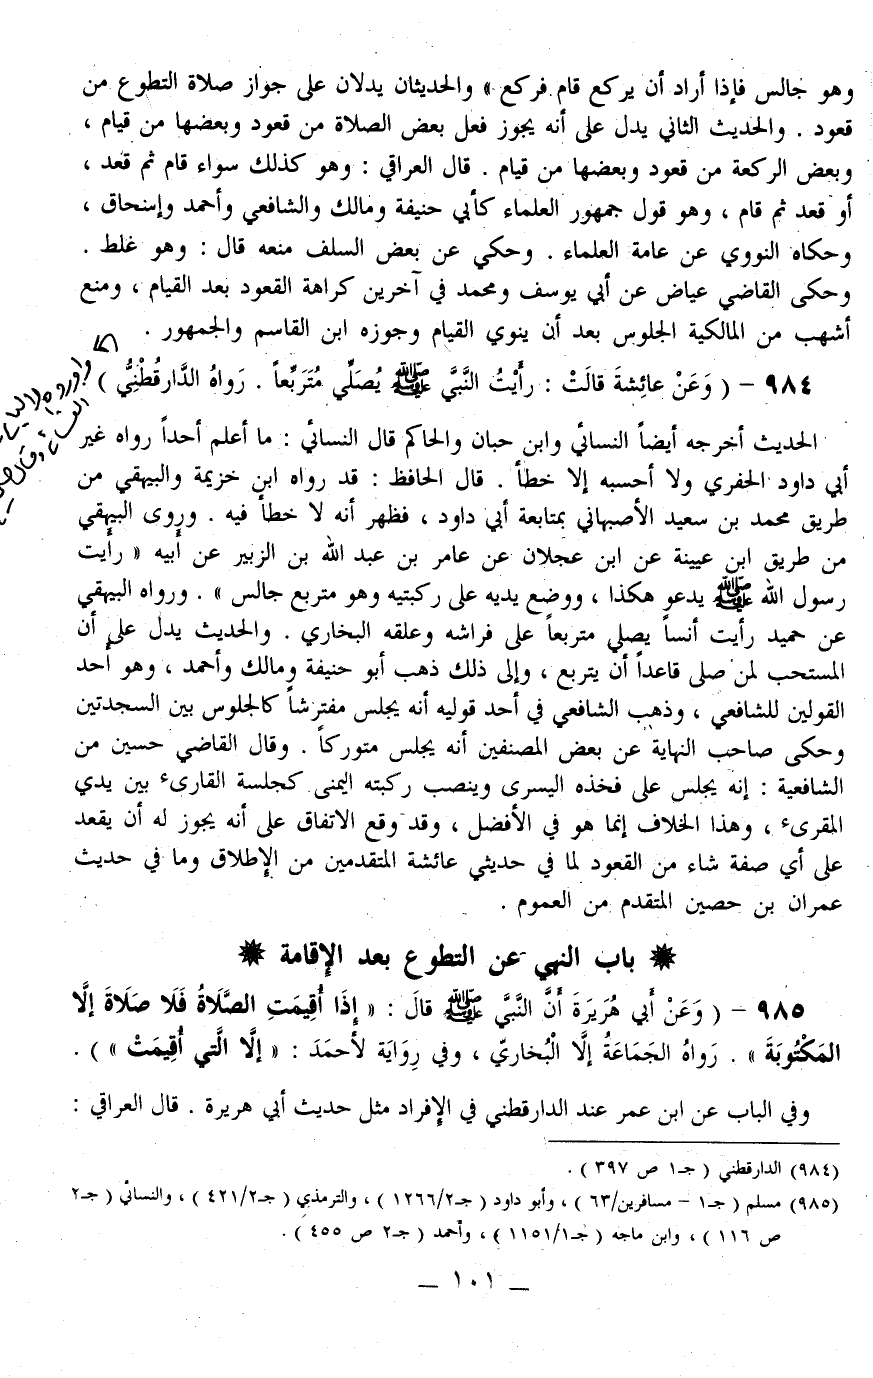 وهو جالس فإذا أراد أن يركع قام فركع » والحديثان يدلان على جواز صلاة التطوع من
قعود . والحديث الثاني يدل على أنه يجوز فعل بعض الصلاة من قعود وبعضها من قيام ،
وبعض الركعة من قعود وبعضها من قيام . قال العراقي : وهو كذلك سواء قام ثم قعد ،
أو قعد ثم قام ، وهو قول جمهور العلماء كأبي حنيفة ومالك والشافعي وأحمد وإسحاق ،
وحكاه النووي عن عامة العلماء . وحكي عن بعض السلف منعه قال : وهو غلط .
وحكى القاضي عياض عن أبي يوسف ومحمد في آخرين كراهة القعود بعد القيام ، ومنع
أشهب من المالكية الجلوس بعد أن ينوي القيام وجوزه ابن القاسم والجمهور .
٩٨٤ - ( وَعَنْ عائِشةَ قالَتْ : رأَيْتُ النَّبيَّ ﷺ يُصَلِّي مُتَرَبِّعاً . رَواهُ الدَّارقُطْنِيُّ )
الحديث أخرجه أيضاً النسائي وابن حبان والحاكم قال النسائي : ما أعلم أحداً رواه غير
أبي داود الحفري ولا أحسبه إلا خطأ . قال الحافظ : قد رواه ابن خزيمة والبيهقي من
طريق محمد بن سعيد الأصبهاني بمتابعة أبي داود ، فظهر أنه لا خطأ فيه . وروى البيهقي
من طريق ابن عيينة عن ابن عجلان عن عامر بن عبد الله بن الزبير عن أبيه « رأيت
رسول الله ﷺ يدعو هكذا ، ووضع يديه على ركبتيه وهو متربع جالس » . ورواه البيهقي
عن حميد رأيت أنساً يصلي متربعاً على فراشه وعلقه البخاري . والحديث يدل على أن
المستحب لمن صلى قاعداً أن يتربع ، وإلى ذلك ذهب أبو حنيفة ومالك وأحمد ، وهو أحد
القولين للشافعي ، وذهب الشافعي في أحد قوليه أنه يجلس مفترشاً كالجلوس بين السجدتين
وحكى صاحب النهاية عن بعض المصنفين أنه يجلس متوركاً . وقال القاضي حسين من
الشافعية : إنه يجلس على فخذه اليسرى وينصب ركبته اليمنى كجلسة القارىء بين يدي
المقرىء ، وهذا الخلاف إنما هو في الأفضل ، وقد وقع الاتفاق على أنه يجوز له أن يقعد
على أي صفة شاء من القعود لما في حديثي عائشة المتقدمين من الإطلاق وما في حديث
عمران بن حصين المتقدم من العموم .
باب النهي عن التطوع بعد الإقامة
٩٨٥ - ( وَعَنْ أبي هُرَيرَةَ أنَّ النَّبيَّ ﷺ قالَ : « إذَا أُقِيمَتِ الصَّلَاةُ فَلَا صَلَاةَ إلَّا
المَكْتُوبَةَ » . رَواهُ الجَمَاعَةُ إلَّا الْبُخاريّ ، وفي رِوَايَة لأَحمَدَ : « إلَّا الَّتي أُقِيمَتْ » ) .
وفي الباب عن ابن عمر عند الدارقطني في الإفراد مثل حديث أبي هريرة . قال العراقي :
(٩٨٤) الدارقطني ( جـ١ ص ٣٩٧ ) .
(٩٨٥) مسلم ( جـ١ - مسافرين/٦٣ ) ، وأبو داود ( جـ١٢٦٦/٢ ) ، والترمذي ( جـ٤٢١/٢ ) ، والنسائي ( جـ٢
ص ١١٦ ) ، وابن ماجه ( جـ١١٥١/١ ) ، وأحمد ( جـ٢ ص ٤٥٥ ) .
— ١٠١ —